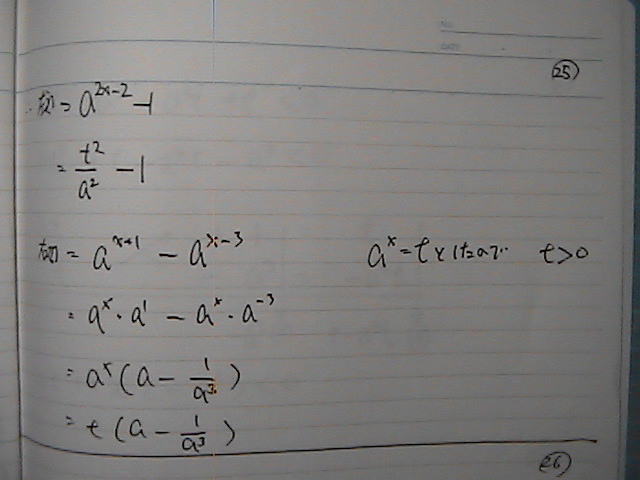 25
∴左辺 = a^{2x-2} - 1
= \frac{t^2}{a^2} - 1
右辺 = a^{x+1} - a^{x-3} a^x = t としたので t > 0
= a^x · a^1 - a^x · a^{-3}
= a^x (a - \frac{1}{a^3})
= t (a - \frac{1}{a^3})
26